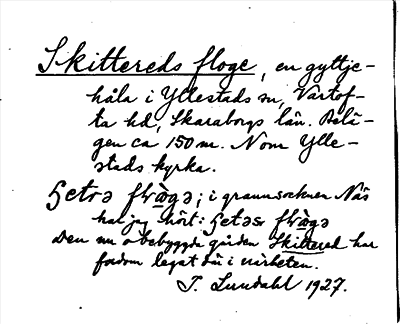 Skittereds floge, en gyttje-
håla i Yllestads sn, Vartof-
ta hd, Skaraborgs län. Belä-
gen ca 150 m. Norr Ylle-
stads kyrka.
; i grannsocknen Näs
har jag hört:
Den nu obebyggda gården Skittered har
fordom legat där i närheten.
T. Lundahl 1927.